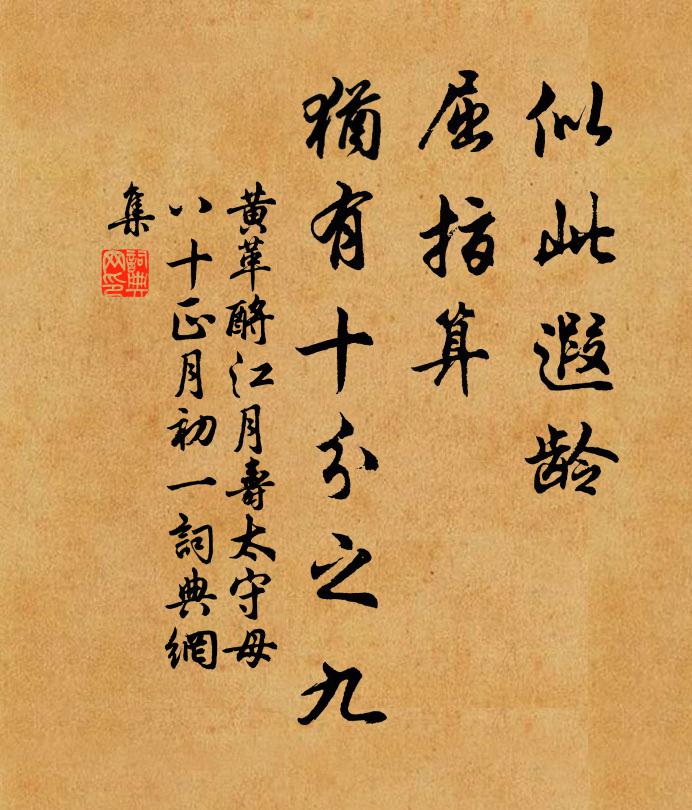 似此遐龄
屈指算
犹有十分之九
黄革酹江月壽太守母
八十正月初一詞典網
集
詞典
网印